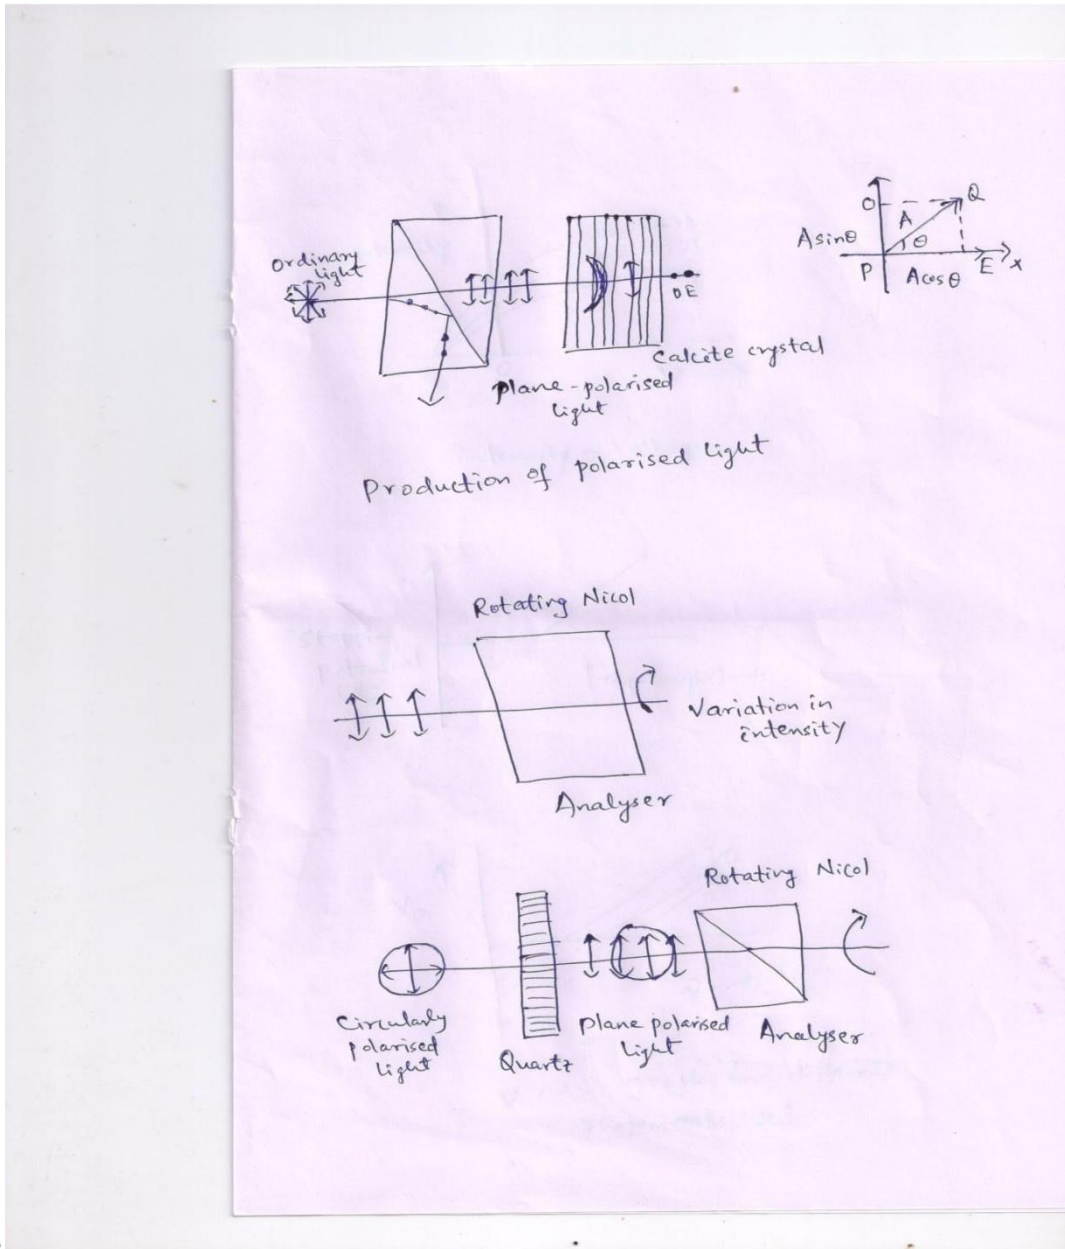 Ordinary
light
O
Q
A
θ
Asinθ
P
Acosθ
E
x
O E
Calcite crystal
Plane-polarised
light
Production of polarised light
Rotating Nicol
Variation in
intensity
Analyser
Rotating Nicol
Circularly
polarised
light
Quartz
Plane polarised
light
Analyser